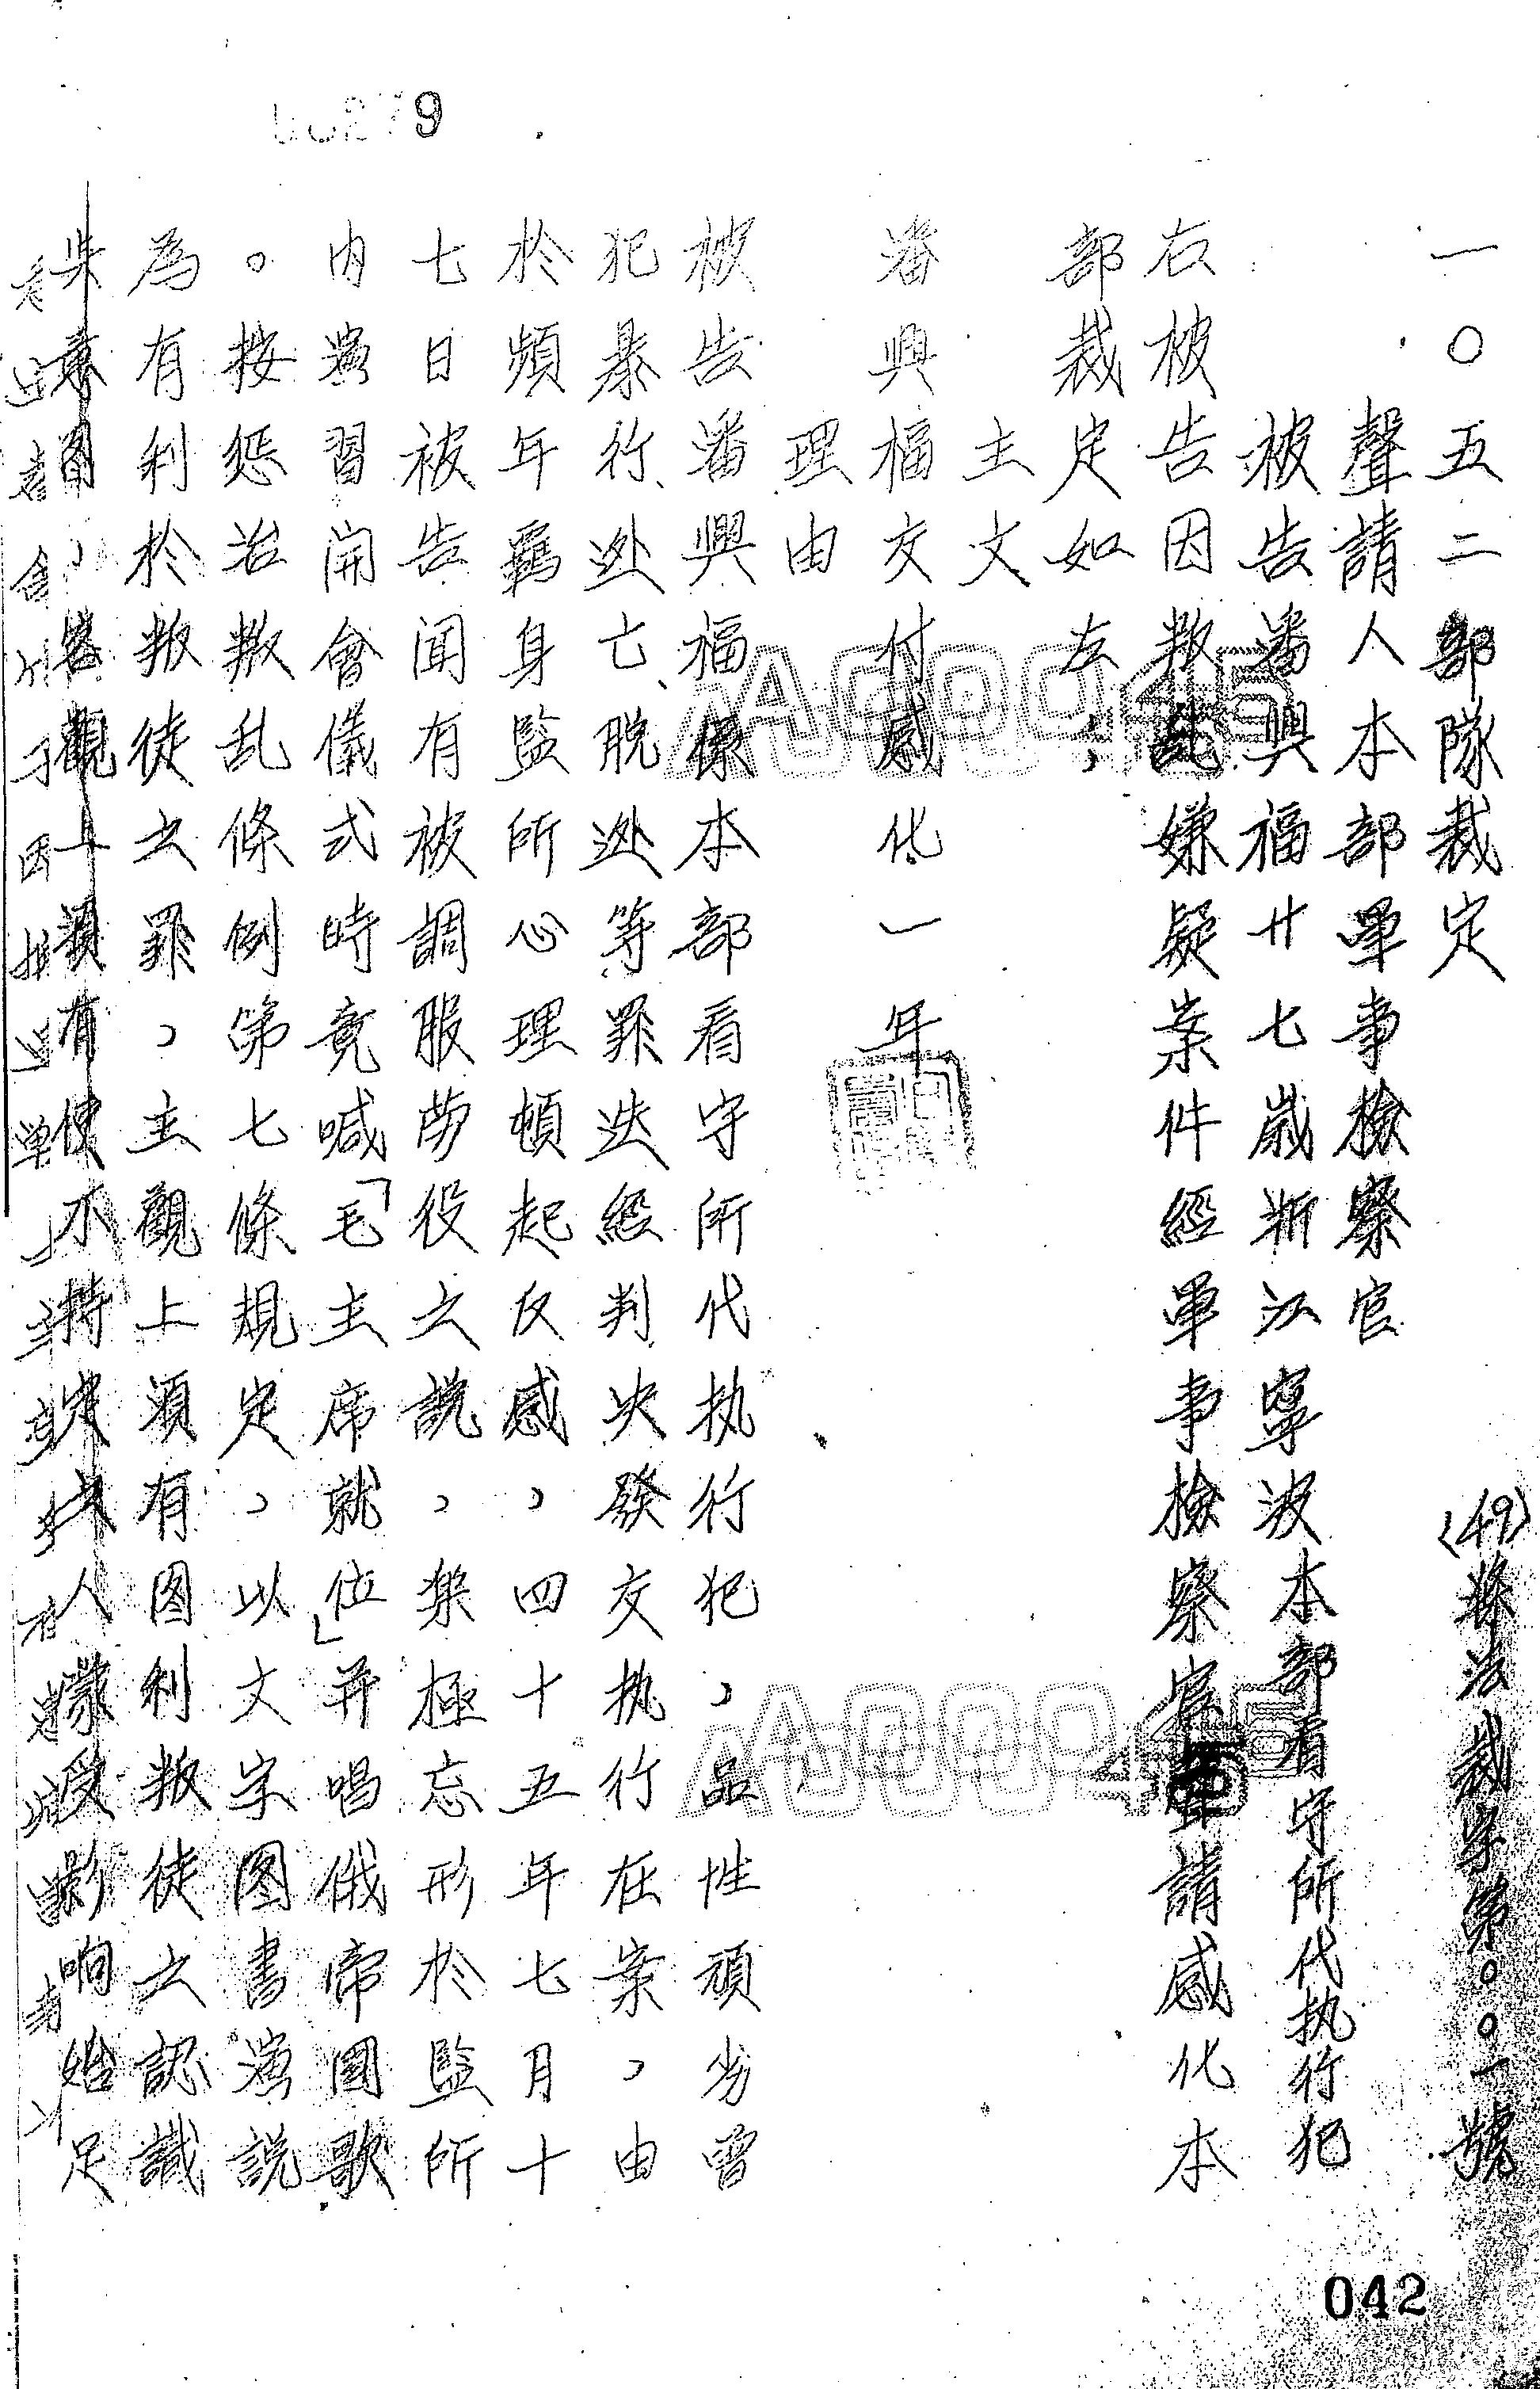 一〇五二部隊裁定
(49)
法裁字第〇〇一號
聲請人本部軍事檢察官
被告潘興福廿七歲浙江寧波本部看守所代执行犯
右被告因叛乱嫌疑案件經軍事檢察官聲請感化本
部裁定如左,
主文
潘興福交付感化一年
理由
被告潘興福係本部看守所代执行犯,品性頑劣曾
犯暴行、逃亡、脱逃等罪迭經判决發交执行在案,由
於頻年羈身監所心理頓起反感,四十五年七月十
七日被告闻有被調服勞役之說,樂極忘形於監所
内演習開會儀式時竟喊「毛主席就位」并唱俄帝國歌
。按惩治叛乱條例第七條規定,以文字图書演說
為有利於叛徒之罪,主觀上須有图利叛徒之認識
客觀上須有使不特定人蒙受影响始足
00279
A000245
A000245
042